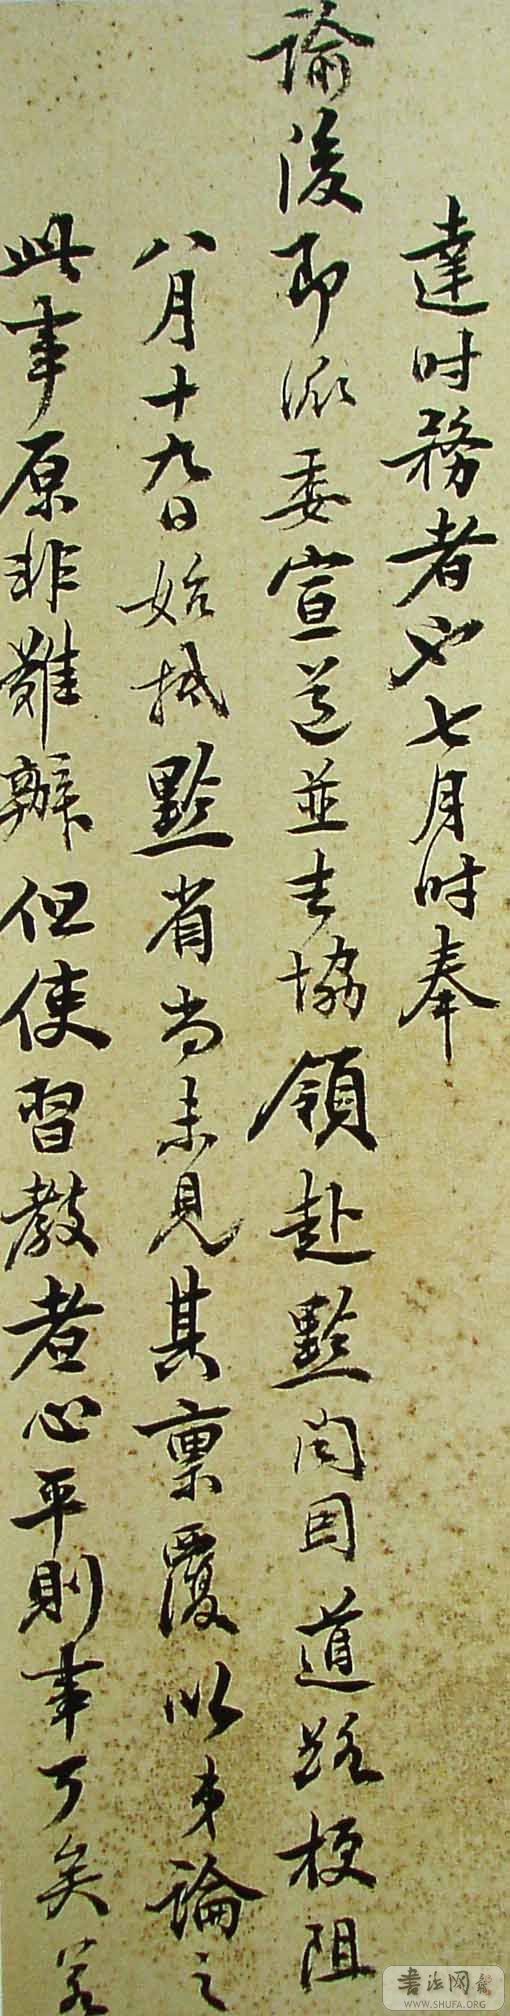 達时務者也七月时奉
諭後即派委宣道並吉協領赴黔聞因道路梗阻
八月十九日始抵黔省尚未見其稟覆以弟論之
此事原非難辦但使習教者心平則事了矣若
書法网
WWW.SHUFA.ORG